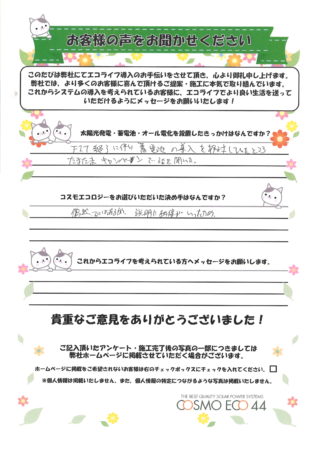 お客様の声をお聞かせください
このたびは弊社にてエコライフ導入のお手伝いをさせて頂き、心より御礼申し上げます。
弊社では、より多くのお客様に喜んで頂けるご提案・施工に本気で取り組んでいます。
これからシステムの導入を考えられているお客様に、エコライフでより良い生活を送って
いただけるようにメッセージをお願いいたします！
太陽光発電・蓄電池・オール電化を設置したきっかけはなんですか？
FIT終了に伴い蓄電池の導入を検討していたところ
たまたま キャンペーン
コスモエコロジーをお選びいただいた決め手はなんですか？
説明に納得がいったため
これからエコライフを考えられている方へメッセージをお願いします。
貴重なご意見をありがとうございました！
ご記入頂いたアンケート・施工完了後の写真の一部につきましては
弊社ホームページに掲載させていただく場合がございます。
ホームページに掲載をご希望されないお客様は右のチェックボックスにチェックを入れてください。
※個人情報は掲載いたしません、また、個人情報の特定につながるような写真は掲載いたしません。
THE BEST QUALITY SOLAR POWER SYSTEMS
COSMO ECO 44